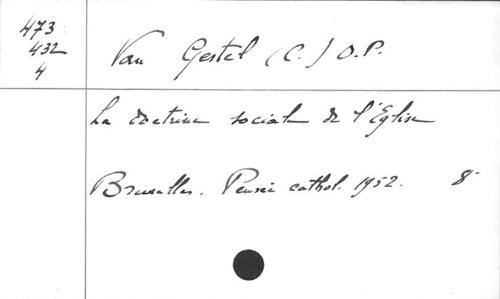 473
432
4
Van Gestel (C.) O.P.
La doctrine sociale de l'Eglise
Bruxelles. Pensée cathol. 1952. 8°